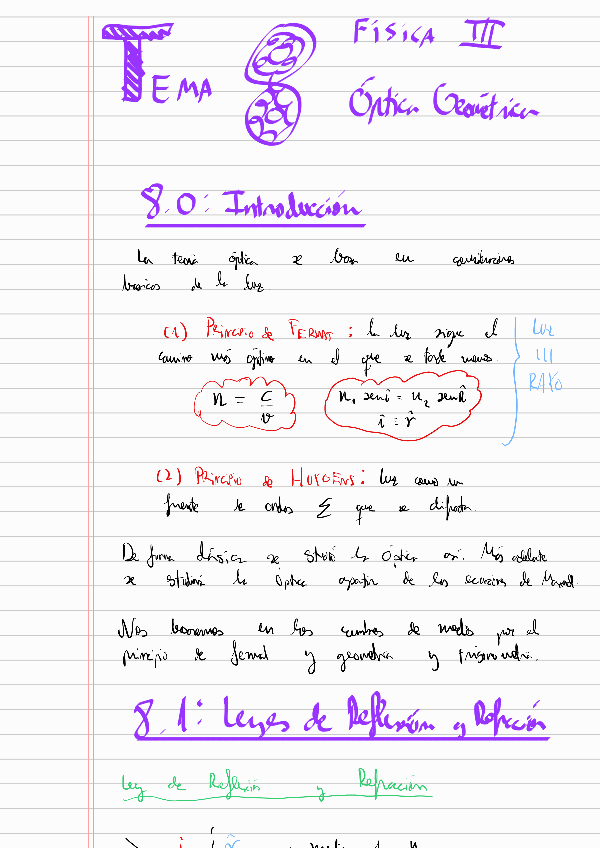 Física III
Tema 8
Óptica Geométrica
8.0: Introducción
La teoría óptica se basa en
básicos de la luz
(1) Principio de Fermat: la luz sigue el
camino más óptimo en el que se tarde menos.
Luz
III
RAYO
n = c/v
n₁ sen î = n₂ sen R̂
î = r̂
(2) Principio de Huygens: luz como un
frente de ondas Σ que se difracta.
De forma clásica se la óptica así. Más adelante
se la óptica apartir de las ecuaciones de Maxwell.
Nos basaremos en los cambios de medio por el
principio de fermat y geometría y trigonometría.
8.1: Leyes de Reflexión y Refracción
Ley de Reflexión y Refracción